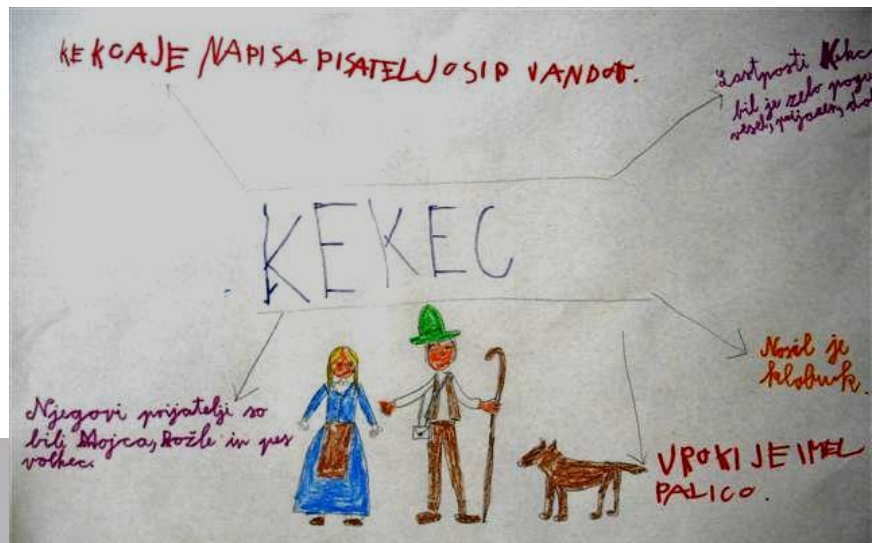 KEKCAJE NAPISA PISATELJ OSIP VANDOT.
Lastnosti
bil je zelo
vesel, prijazen,
KEKEC
Nosil je
klobuk.
Njegovi prijatelji so
bili Mojca, Rožle in pes
volkec.
V ROKI JE IMEL
PALICO.